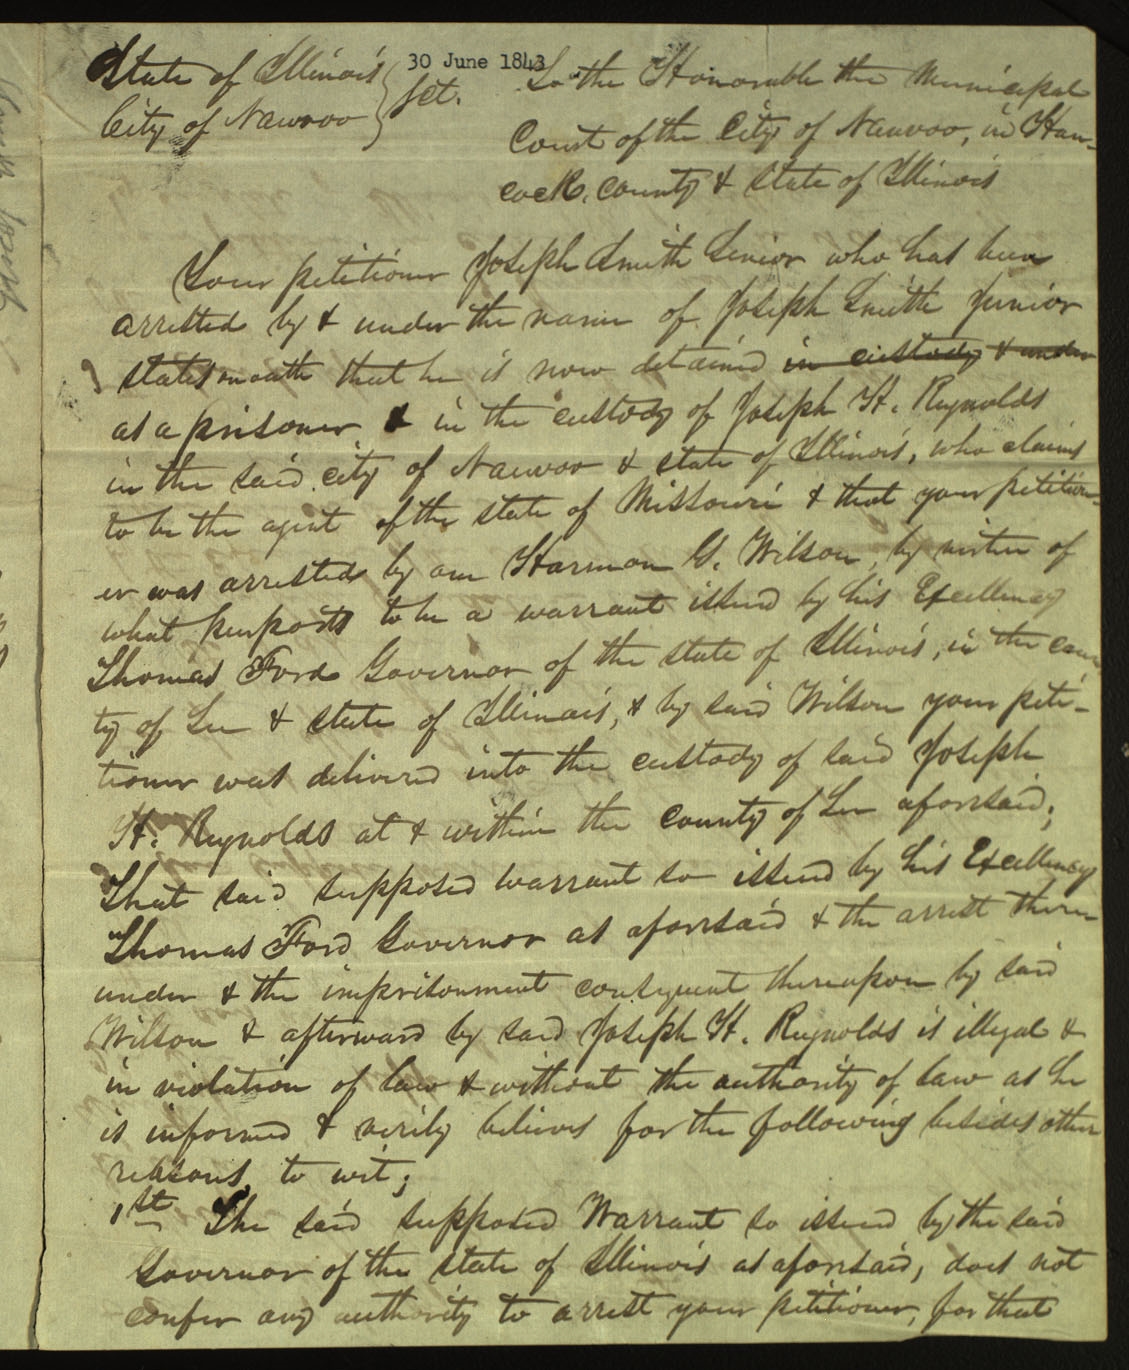 State of Illinois } sct.
City of Nauvoo }
30 June 1843
To the Honorable the Municipal
Court of the City of Nauvoo, in Han-
cock, county & state of Illinois
Your petitioner Joseph Smith Senior who has been
arrested by & under the name of Joseph Smith Junior
states on oath that he is now detained in custody & under
as a prisoner & in the custody of Joseph H. Reynolds
in the said city of Nauvoo & state of Illinois, who claims
to be the agent of the state of Missouri & that your petition-
er was arrested by one Harmon G. Wilson, by virtue of
what purports to be a warrant issued by his Excellency
Thomas Ford Governor of the state of Illinois, in the coun
ty of Lee & state of Illinois, & by said Wilson your peti-
tioner was delivered into the custody of said Joseph
H. Reynolds at & within the county of Lee aforesaid;
That said supposed warrant so issued by his Excellency
Thomas Ford Governor as aforesaid & the arrest there-
under & the imprisonment consequent thereupon by said
Wilson & afterward by said Joseph H. Reynolds is illegal &
in violation of law & without the authority of law as he
is informed & verily believes for the following besides other
reasons, to wit;
1st The said supposed Warrant so issued by the said
Governor of the state of Illinois as aforesaid, does not
confer any authority to arrest your petitioner, for that